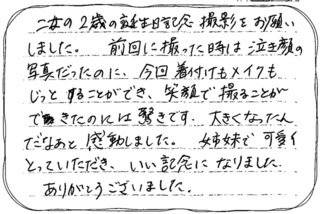 二女の2歳の誕生日記念撮影をお願い
しました。 前回に撮った時は泣き顔の
写真だったのに、今回着付けもメイクも
じっとすることができ、笑顔で撮ることが
できたのには驚きです。大きくなったん
だなあと感動しました。 姉妹で可愛く
とっていただき、いい記念になりました。
ありがとうございました。